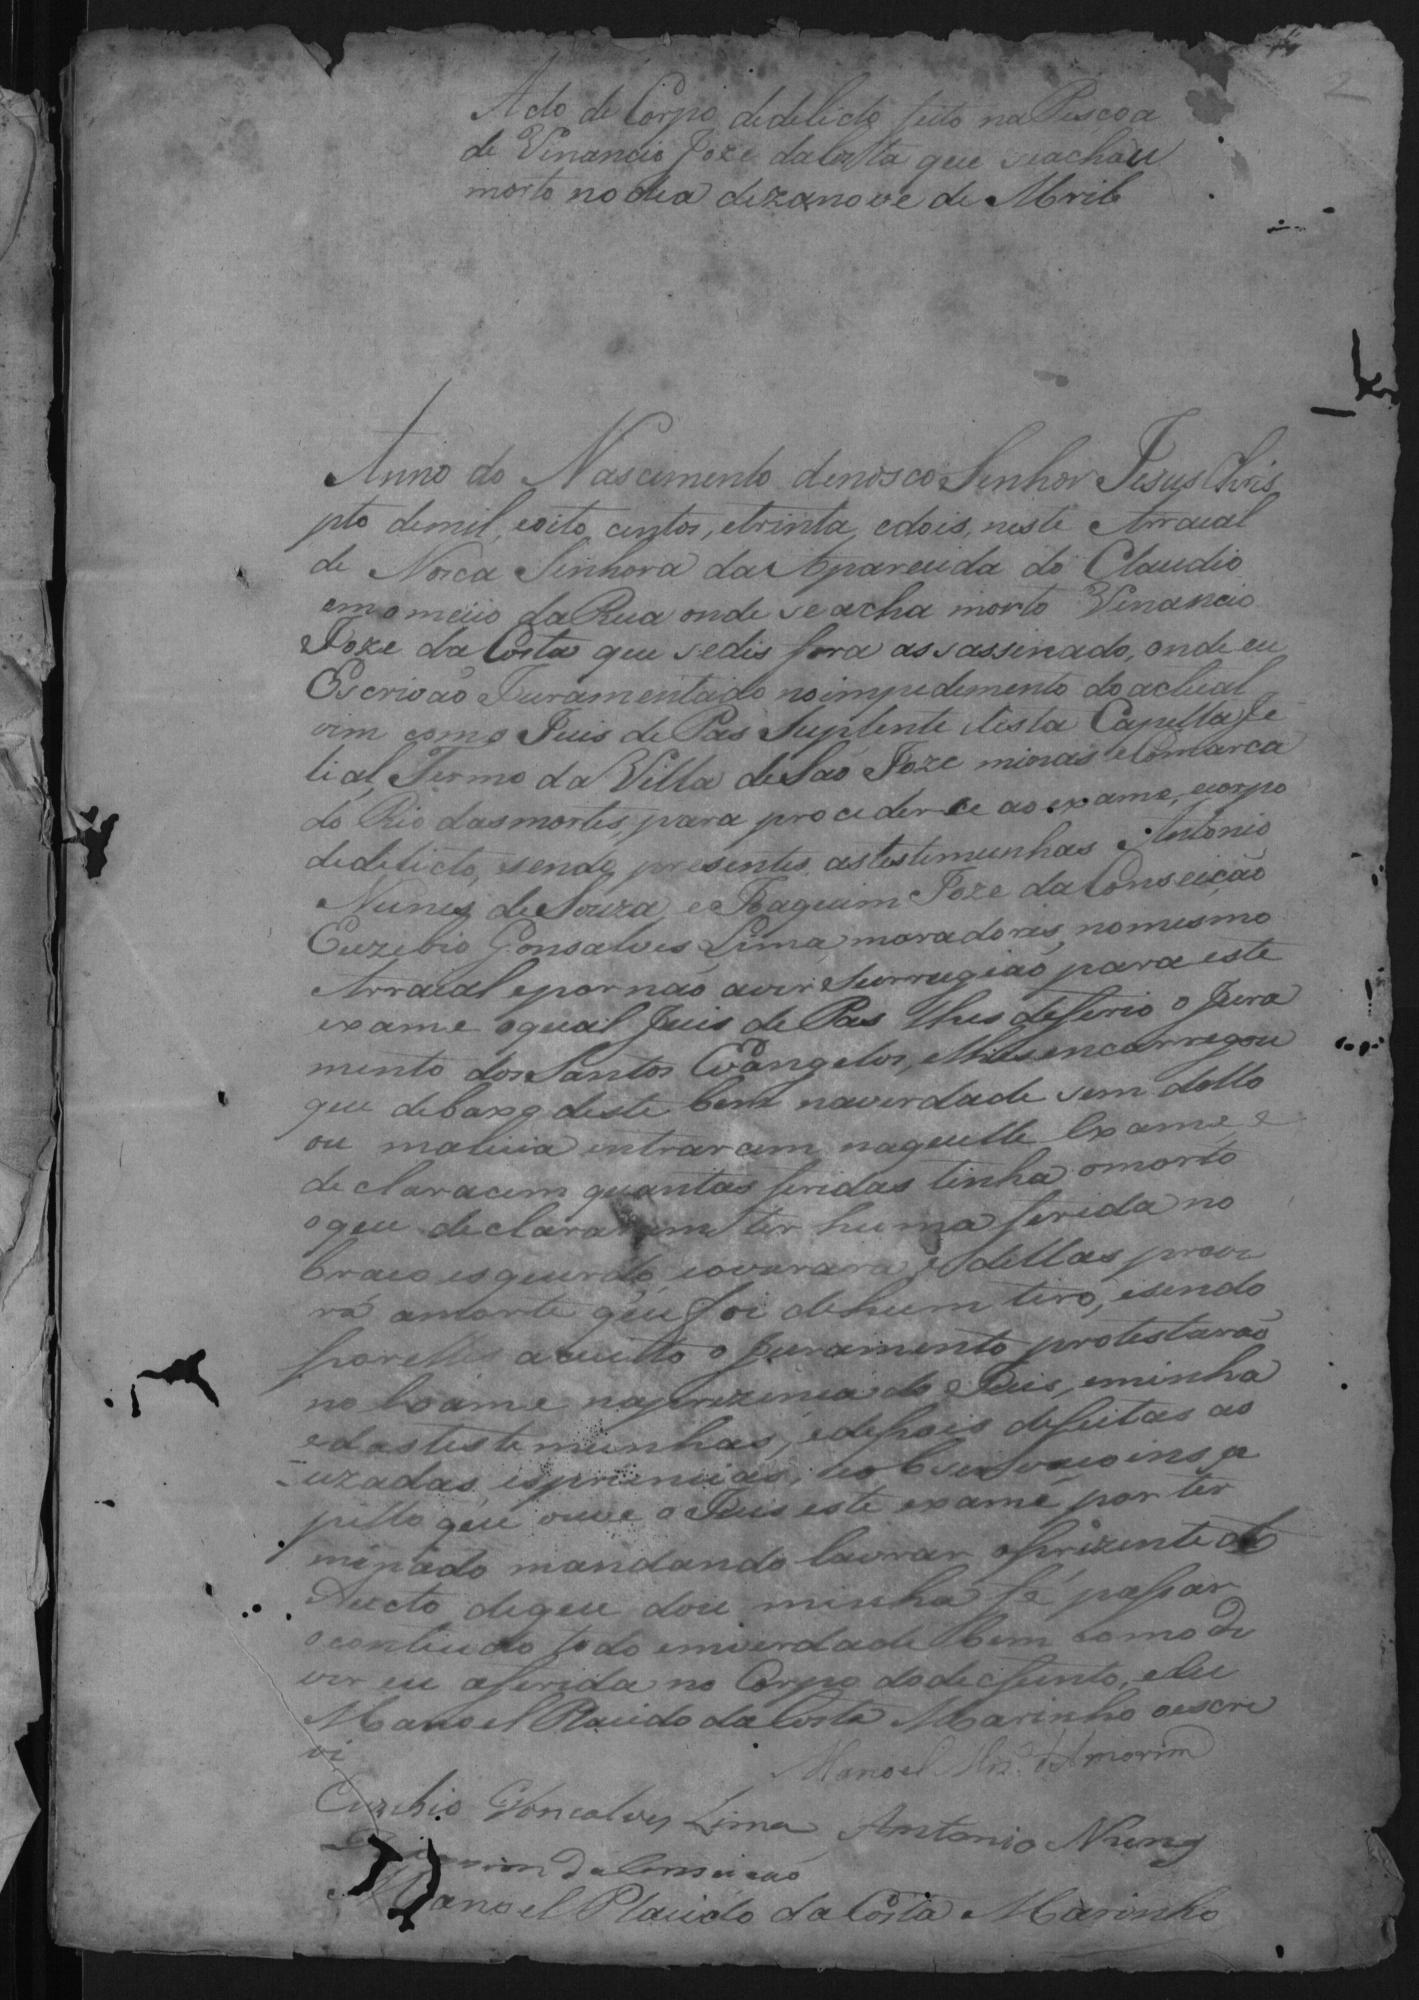 2
Acto de Corpo dedelicto feito na Pescoa
de Venancio Joze da Costa que seachou
morto no dia dezanove de Abril
Anno do Nascimento denosco Senhor Jesus Chris
pto demil, eoito centos, etrinta, edois, neste Arraial
de Nosca Senhora da Aparecida do Claudio
em o meiio da Rua onde se acha morto Venancio
Joze da Costa que sedis fora assassinado, onde eu
Escrivão Juramentado no impedimento do actual
vim com o Juis de Pas Suplente desta Capella fe
lial, Termo da Villa de São Joze minas e Comarca
do Rio das mortes, para proceder ce ao exame, ecorpo
dedelicto, sendo presentes as testemunhas Antonio
Nunes de Souza, e Joaquim Joze da Conseição
Euzebio Gonsalves Lima, moradores, nomesmo
Arraial epor não aver Surrugião para este
exame oqual Juis de Pas lhes deferio o Jura
mento dos Santos Evangelos, elhes encarregou
que debaxo deste bem naverdade sem dollo
ou malicia entrarcem naquelle Exame, e
declaracem quantas feridas tinha omorto
oque declararam ter huma ferida no
braco esquerdo, e dellas prove
rá amorte que foi dehum tiro, esendo
por elles aceitto o Juramento protestarão
no Exame naprezencia do Juis, eminha
edastestemunhas, edepois defeitas as
uzadas espriencias, eobservacoins a
pello que ouve o Juis este exame por ter
minado mandando lavrar oprezente
Aucto dequi dou minha fé pasar
ocontiudo todo emverdade bem como di
ver eu aferida no Corpo dodefunto, eEu
Manoel Placido da Costa Marinho oescre
vi
Manoel d'Amorim
Euzebio Goncalves Lima Antonio Nunes
da Conseicao
Manoel Placido da Costa Marinho